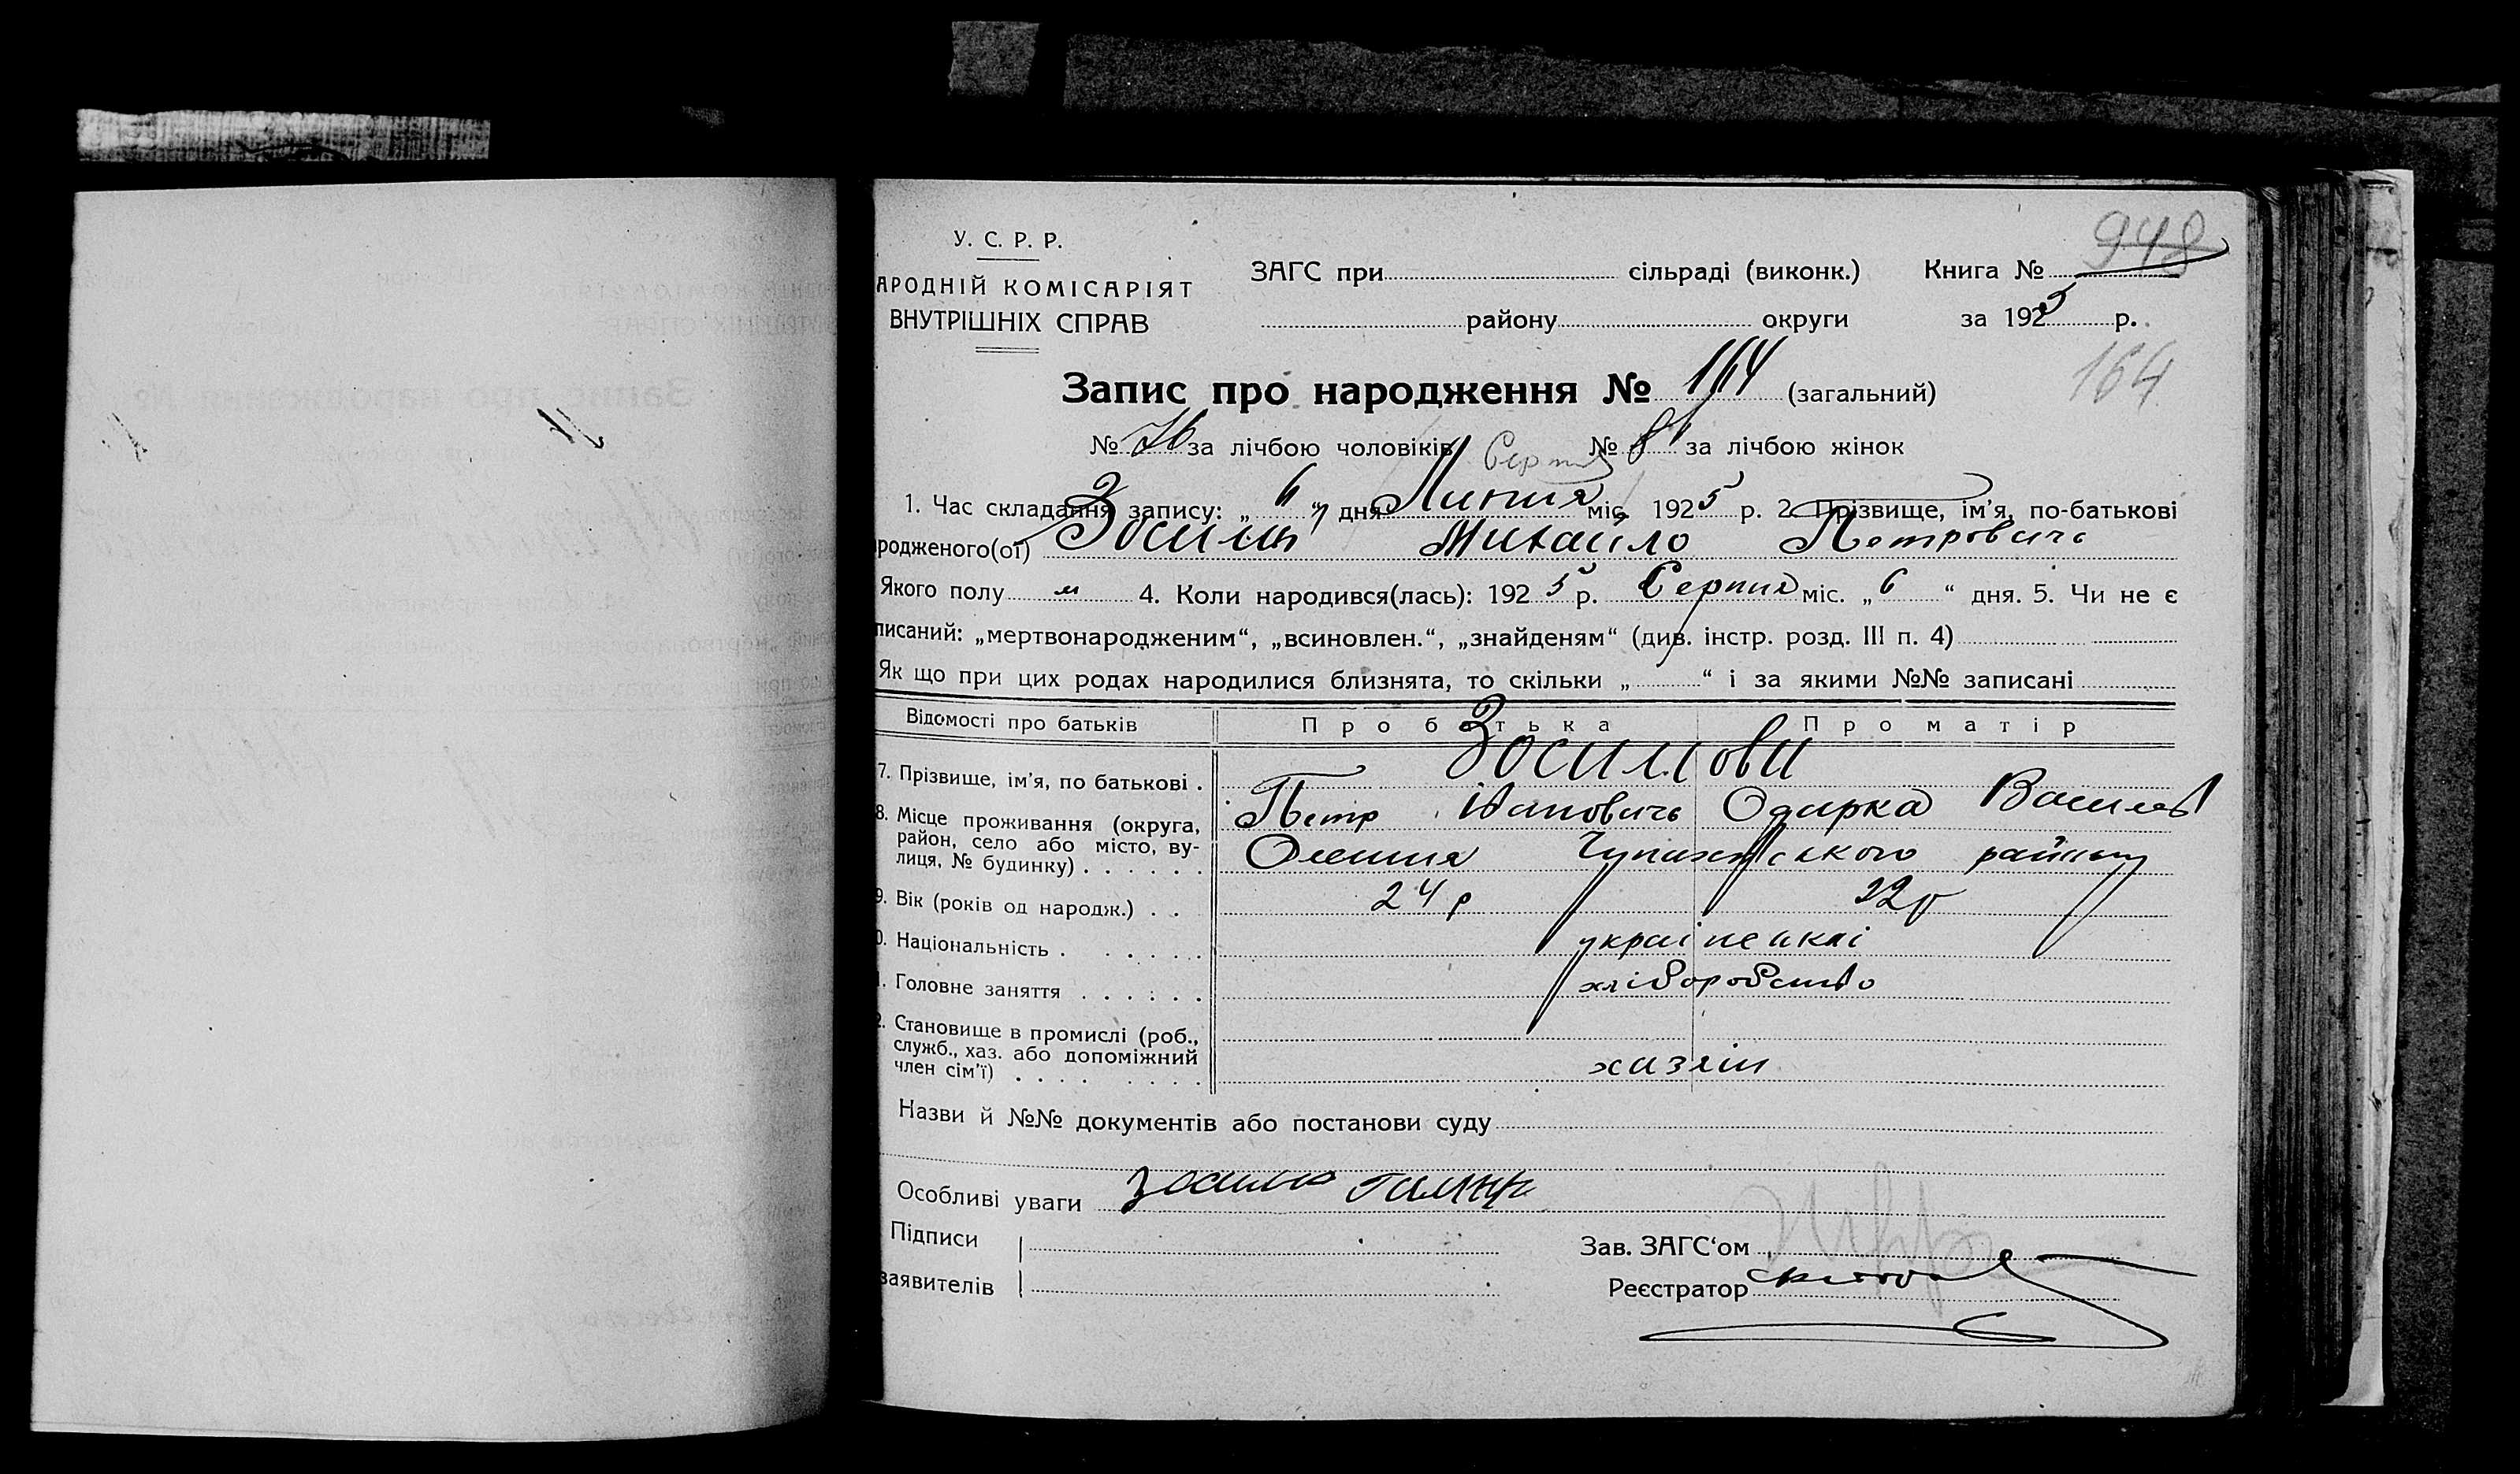 У. С. Р. Р.
АРОДНІЙ КОМІСАРІЯТ
ВНУТРІШНІХ СПРАВ
ЗАГС при сільраді (виконк.) Книга №
948
району округи за 1925 р.
Запис про народження № 164 (загальний)
164
№ 76 за лічбою чоловіків № 8 за лічбою жінок
Серпня
1. Час складання запису: „ 6 “ дня Липня міс. 1925 р. 2. Прізвище, ім'я, по-батькові
родженого(ої) Зосим Михайло Петровичъ
Якого полу м 4. Коли народився(лась): 1925 р. Серпня міс. „ 6 “ дня. 5. Чи не є
писаний: „мертвонародженим“, „всиновлен.“, „знайденям“ (див. інстр. розд. III п. 4)
Як що при цих родах народилися близнята, то скільки „ “ і за якими №№ записані
Відомості про батьків Про батька Про матір
7. Прізвище, ім'я, по батькові . Зосимови
Петр Ивановичъ Одарка Василев
8. Місце проживання (округа,
район, село або місто, ву-
лиця, № будинку) . . . . . . Олешня Чупахівського району
9. Вік (років од народж.) . . 24 р 22 р
0. Національність . . . . . . українські
1. Головне заняття . . . . . . хліборобство
2. Становище в промислі (роб.,
служб., хаз. або допоміжний
член сім'ї) . . . . . . . . хазяін
Назви й №№ документів або постанови суду
Особливі уваги
Підписи
заявителів
Зав. ЗАГС'ом
Реєстратор